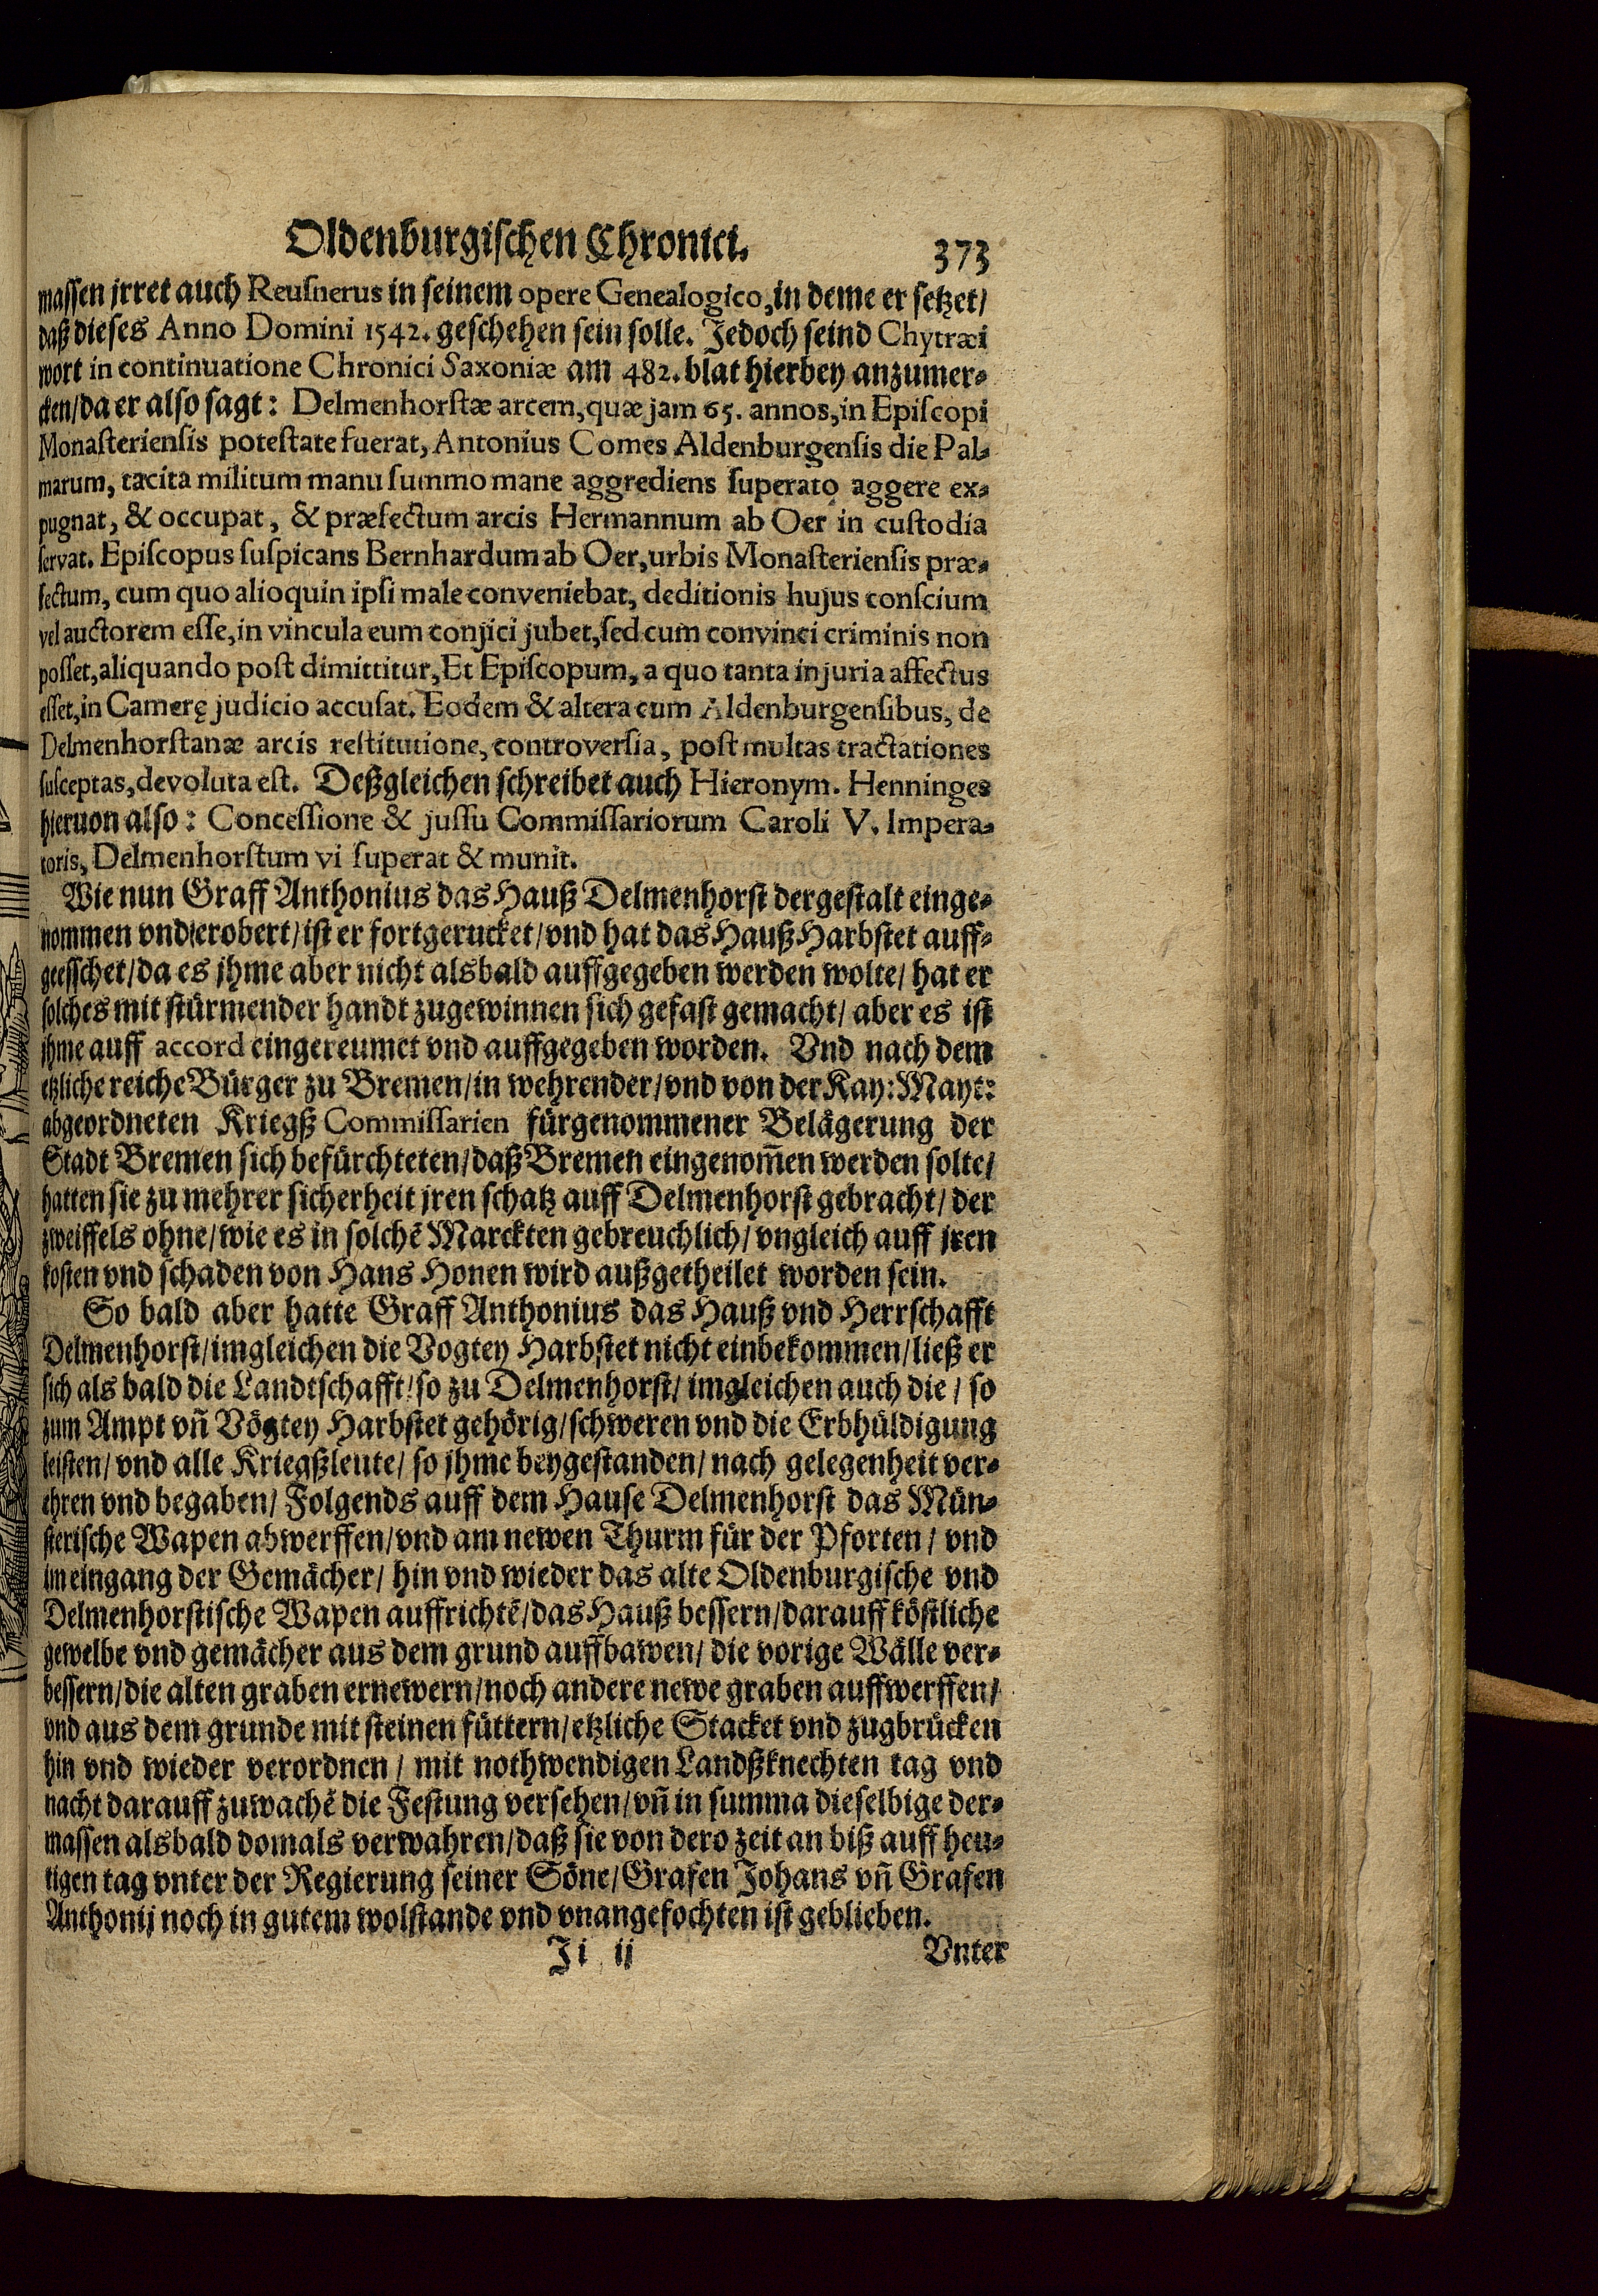 Oldenburgischen Chronici. 373
massen jrret auch Reusnerus in seinem opere Genealogico, in deme er setzet/
daß dieses Anno Domini 1542. geschehen sein solle. Jedoch seind Chytræi
wort in continuatione Chronici Saxoniæ am 482. blat hierbey anzumer-
cken/ da er also sagt: Delmenhorstæ arcem, quæ jam 65. annos, in Episcopi
Monasteriensis potestate fuerat, Antonius Comes Aldenburgensis die Pal-
marum, tacita militum manu summo mane aggrediens superato aggere ex-
pugnat, & occupat, & præfectum arcis Hermannum ab Oer in custodia
servat. Episcopus suspicans Bernhardum ab Oer, urbis Monasteriensis præ-
fectum, cum quo alioquin ipsi male conveniebat, deditionis hujus conscium
vel auctorem esse, in vincula eum conjici jubet, sed cum convinci criminis non
posset, aliquando post dimittitur, Et Episcopum, a quo tanta injuria affectus
esset, in Camerę judicio accusat. Eodem & altera cum Aldenburgensibus, de
Delmenhorstanæ arcis restitutione, controversia, post multas tractationes
susceptas, devoluta est. Deßgleichen schreibet auch Hieronym. Henninges
hieruon also: Concessione & jussu Commissariorum Caroli V. Impera-
toris, Delmenhorstum vi superat & munit.
Wie nun Graff Anthonius das Hauß Delmenhorst dergestalt einge-
nommen vnd erobert/ ist er fortgerucket/ vnd hat das Hauß Harbstet auff-
geesschet/ da es jhme aber nicht alsbald auffgegeben werden wolte/ hat er
solches mit stürmender handt zugewinnen sich gefast gemacht/ aber es ist
jhme auff accord eingereumet vnd auffgegeben worden. Vnd nach dem
etzliche reiche Bürger zu Bremen/ in wehrender/ vnd von der Kay: Mayt:
abgeordneten Kriegß Commissarien fürgenommener Belägerung der
Stadt Bremen sich befürchteten/ daß Bremen eingenom̃en werden solte/
hatten sie zu mehrer sicherheit jren schatz auff Delmenhorst gebracht/ der
zweiffels ohne/ wie es in solchẽ Marckten gebreuchlich/ vngleich auff jren
kosten vnd schaden von Hans Honen wird außgetheilet worden sein.
So bald aber hatte Graff Anthonius das Hauß vnd Herrschafft
Delmenhorst/ imgleichen die Vogtey Harbstet nicht einbekommen/ ließ er
sich als bald die Landtschafft/ so zu Delmenhorst/ imgleichen auch die/ so
zum Ampt vñ Vögtey Harbstet gehörig/ schweren vnd die Erbhüldigung
leisten/ vnd alle Kriegßleute/ so jhme beygestanden/ nach gelegenheit ver-
ehren vnd begaben/ Folgends auff dem Hause Delmenhorst das Mün-
sterische Wapen abwerffen/ vnd am newen Thurm für der Pforten/ vnd
im eingang der Gemächer/ hin vnd wieder das alte Oldenburgische vnd
Delmenhorstische Wapen auffrichtẽ/ das Hauß bessern/ darauff köstliche
gewelbe vnd gemächer aus dem grund auffbawen/ die vorige Wälle ver-
bessern/ die alten graben ernewern/ noch andere newe graben auffwerffen/
vnd aus dem grunde mit steinen füttern/ etzliche Stacket vnd zugbrücken
hin vnd wieder verordnen/ mit nothwendigen Landßknechten tag vnd
nacht darauff zuwachẽ die Festung versehen/ vñ in summa dieselbige der-
massen alsbald domals verwahren/ daß sie von dero zeit an biß auff heu-
tigen tag vnter der Regierung seiner Söne/ Grafen Johans vñ Grafen
Anthonij noch in gutem wolstande vnd vnangefochten ist geblieben.
Ji ij Vnter